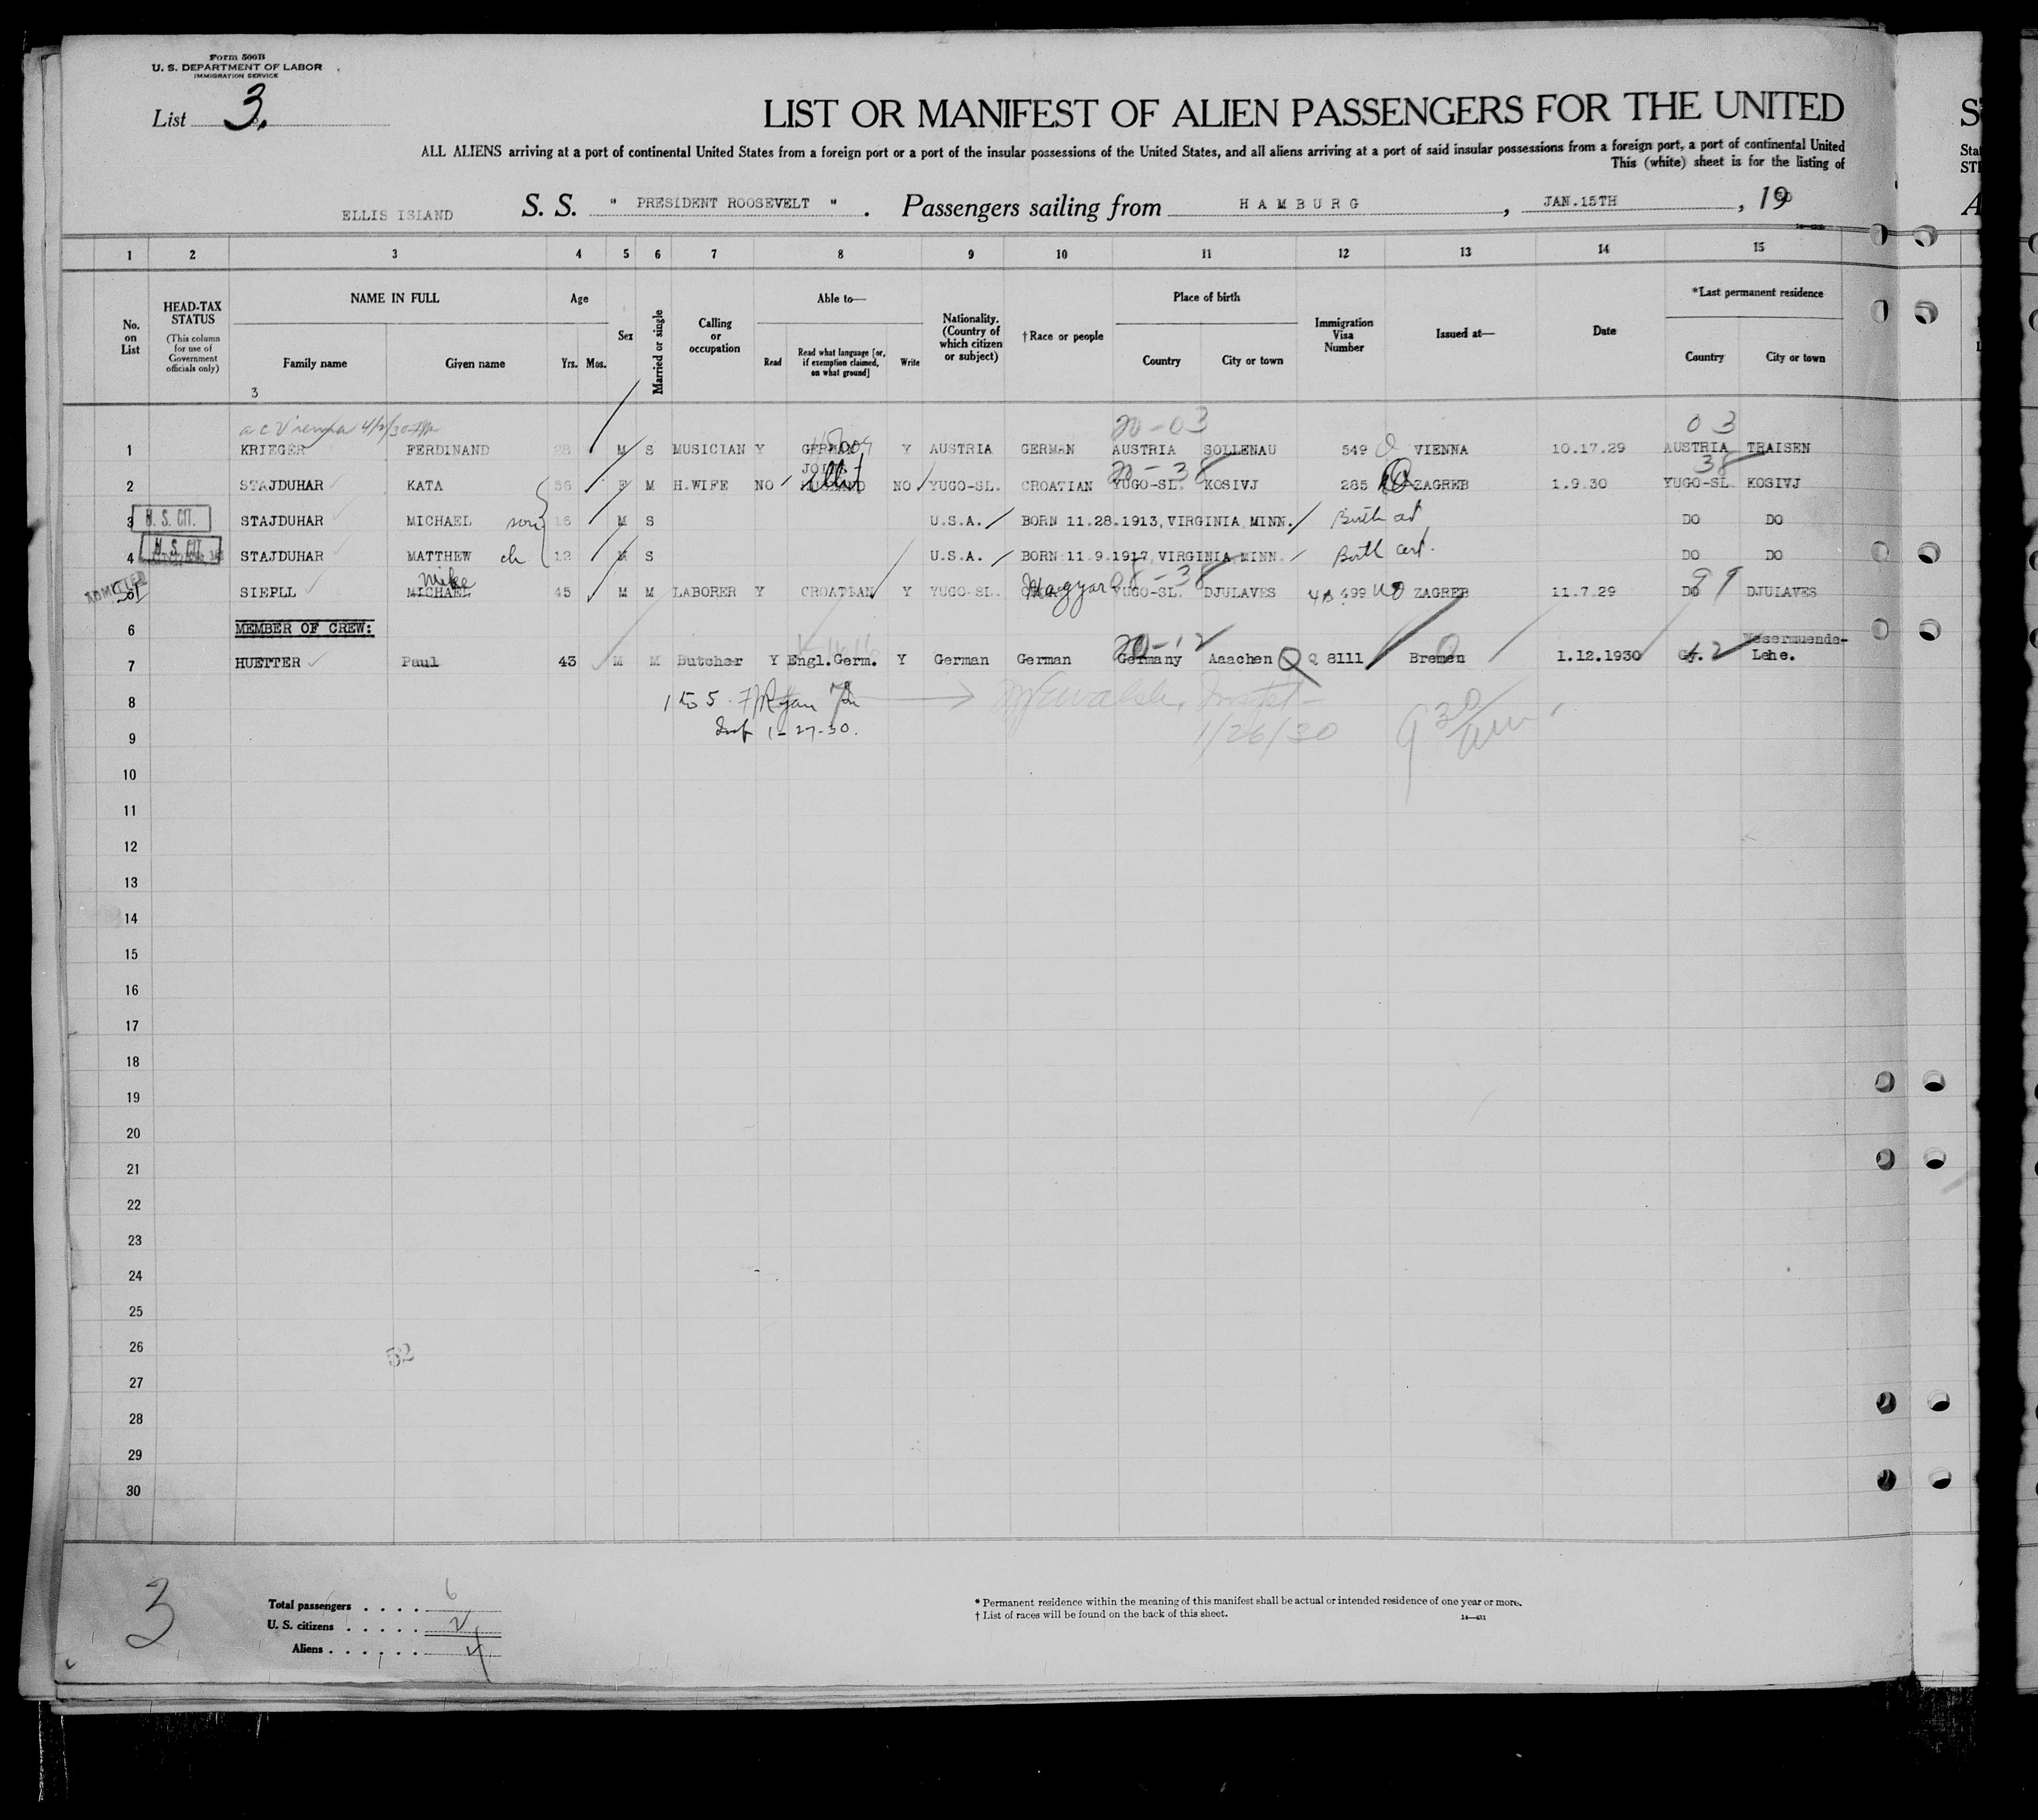 Form 500B
U. S. DEPARTMENT OF LABOR
IMMIGRATION SERVICE
List 3.
LIST OR MANIFEST OF ALIEN PASSENGERS FOR THE UNITED
ALL ALIENS arriving at a port of continental United States from a foreign port or a port of the insular possessions of the United States, and all aliens arriving at a port of said insular possessions from a foreign port, a port of continental United
This (white) sheet is for the listing of
ELLIS ISLAND S. S. " PRESIDENT ROOSEVELT " . Passengers sailing from HAMBURG, JAN.15TH, 19
1 2 3 4 5 6 7 8 9 10 11 12 13 14 15
No. on List
HEAD-TAX STATUS
(This column for use of Government officials only)
NAME IN FULL
Family name Given name
3
Age
Yrs. Mos.
Sex
Married or single
Calling or occupation
Able to—
Read
Read what language [or, if exemption claimed, on what ground]
Write
Nationality. (Country of which citizen or subject)
†Race or people
Place of birth
Country City or town
Immigration Visa Number
Issued at—
Date
*Last permanent residence
Country City or town
a c Vienna 4/2/30 20-03 03
1 KRIEGER FERDINAND 28 M S MUSICIAN Y GERMAN Y AUSTRIA GERMAN AUSTRIA SOLLENAU 549 VIENNA 10.17.29 AUSTRIA TRAISEN
JOINS 20-38 38
2 STAJDUHAR KATA 56 F M H.WIFE NO HUSBAND NO YUGO-SL. CROATIAN YUGO-SL. KOSIVJ 285 ZAGREB 1.9.30 YUGO-SL. KOSIVJ
3 U. S. CIT. STAJDUHAR MICHAEL son 16 M S U.S.A. BORN 11.28.1913, VIRGINIA MINN. Birth cert DO DO
4 U. S. CIT. STAJDUHAR MATTHEW ch 12 M S U.S.A. BORN 11.9.1917, VIRGINIA MINN. Birth cert. DO DO
ADMITTED Mike 08-38 99
SIEPLL MICHAEL 45 M M LABORER Y CROATIAN Y YUGO-SL. Magyar YUGO-SL. DJULAVES 499 ZAGREB 11.7.29 DO DJULAVES
6 MEMBER OF CREW:
20-12 Wesermuende-
7 HUETTER Paul 43 M M Butcher Y Engl.Germ. Y German German Germany Aaachen Q Q 8111 Bremen 1.12.1930 Gy. Lehe.
8 1 to 5 Ryan
9 Insp 1-27-30. 1/26/30 9 30/am
10
11
12
13
14
15
16
17
18
19
20
21
22
23
24
25
26
52
27
28
29
30
3
Total passengers . . . . 6
U. S. citizens . . . . . 2
Aliens . . . . . . 4
* Permanent residence within the meaning of this manifest shall be actual or intended residence of one year or more.
† List of races will be found on the back of this sheet.